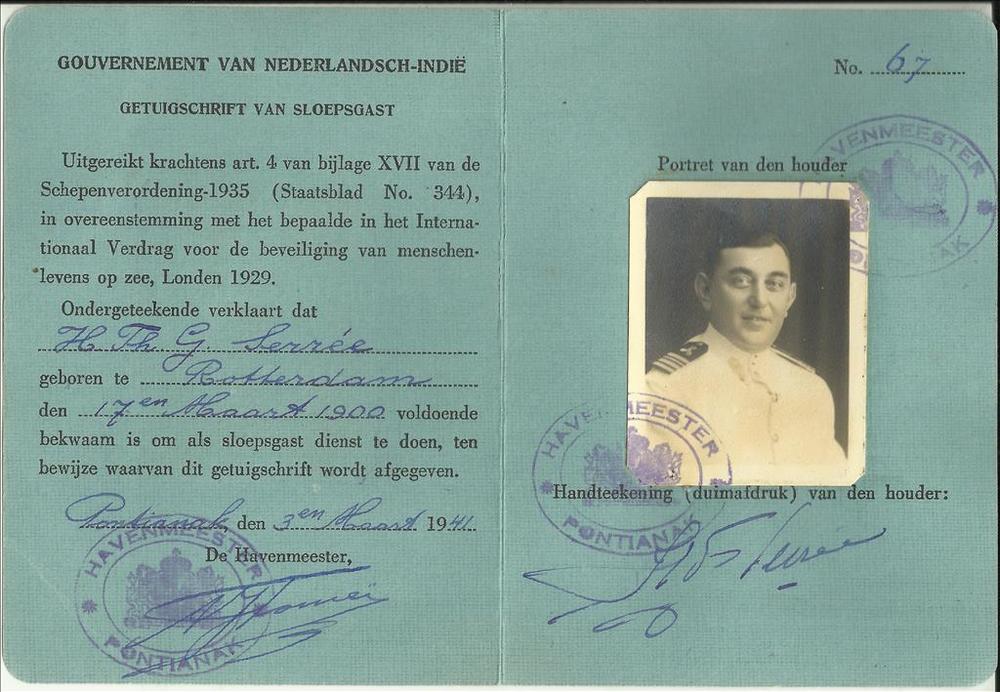 GOUVERNEMENT VAN NEDERLANDSCH-INDIË
GETUIGSCHRIFT VAN SLOEPSGAST
Uitgereikt krachtens art. 4 van bijlage XVII van de
Schepenverordening-1935 (Staatsblad No. 344),
in overeenstemming met het bepaalde in het Interna-
tionaal Verdrag voor de beveiliging van menschen-
levens op zee, Londen 1929.
Ondergeteekende verklaart dat
H. Th. G. Serrée
geboren te Rotterdam
den 17en Maart 1900 voldoende
bekwaam is om als sloepsgast dienst te doen, ten
bewijze waarvan dit getuigschrift wordt afgegeven.
Pontianak, den 3en Maart 1941.
De Havenmeester,
HAVENMEESTER
PONTIANAK
No. 67
HAVENMEESTER
Portret van den houder
HAVENMEESTER
PONTIANAK
Handteekening (duimafdruk) van den houder: